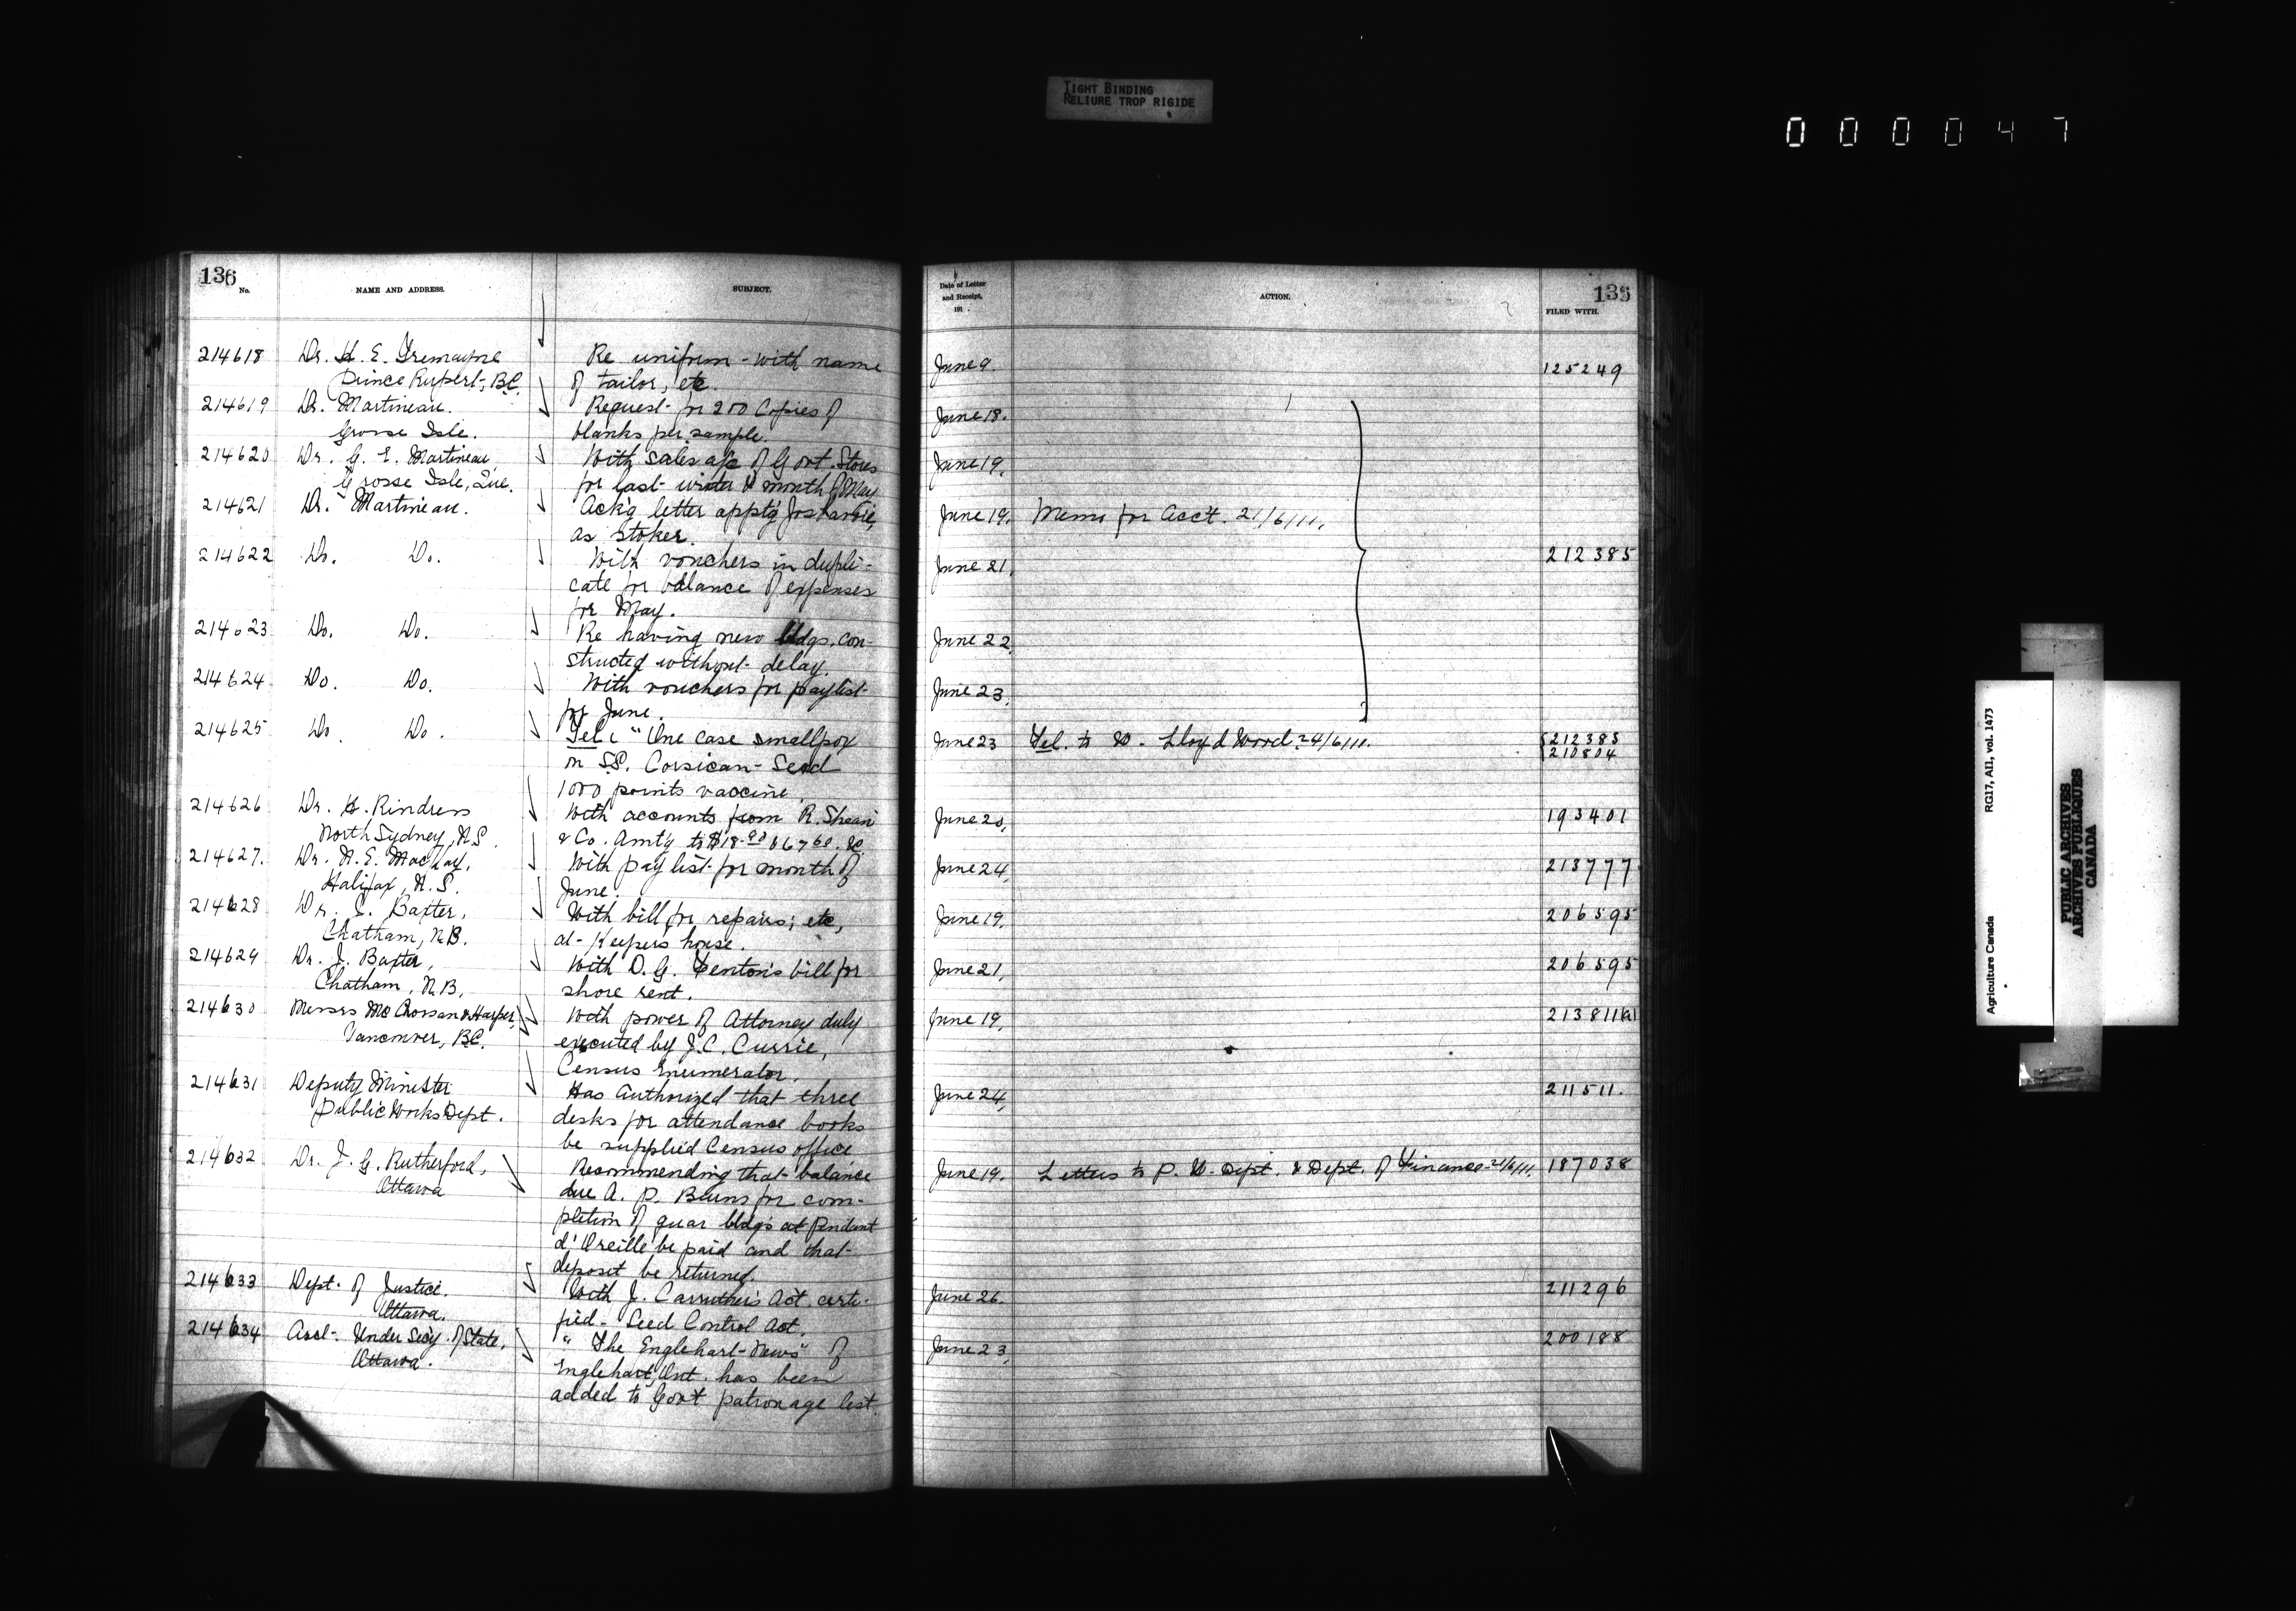 TIGHT BINDING
RELIURE TROP RIGIDE
000047
136
No.
NAME AND ADDRESS.
SUBJECT.
214618 Dr. H. E. Tremayne Re uniform - with name
Prince Rupert, B.C. of tailor, etc.
214619 Dr. Martineau. Request for 200 Copies of
Grosse Isle. blanks per sample.
214620 Dr. G. E. Martineau, With sales a/c of Govt. Stores
Grosse Isle, Que. for last winter & month of May
214621 Dr. Martineau. Ack'g letter appt'g Jos
as stoker.
214622 Do. Do. With vouchers in dupli-
cate for balance of expenses
for May.
214623 Do. Do. Re having new bldgs. con-
structed without delay.
214624 Do. Do. With vouchers for paylist
for June.
214625 Do. Do. Tel: "One case smallpox
on SS. Corsican - Send
1000 points vaccine.
214626 Dr. H. Rindress With accounts from R. Shean
North Sydney, N.S. & Co. Amt'g to $18.90 & 67.60.
214627. Dr. N. E. MacKay, With pay list for month of
Halifax, N.S. June.
214628 Dr. J. Baxter, With bill for repairs, etc,
Chatham, N.B. at Keepers house.
214629 Dr. J. Baxter, With D. G. bill for
Chatham, N.B, shore rent.
214630 Messrs McCrossan & Harper, With power of Attorney duly
Vancouver, B.C. executed by J. C. Currie,
Census Enumerator,
214631 Deputy Minister Has Authorized that three
Public Works Dept. desks for attendance books
be supplied Census office
214632 Dr. J. G. Rutherford, Recommending that balance
Ottawa due A. P. Burns for com-
pletion of quar bldgs at Pendant
d'Oreille be paid and that
deposit be returned.
214633 Dept. of Justice. With J. Carruthers Act. certi-
Ottawa. fied - Seed Control Act.
214634 Asst. Under Secy. of State, "The Englehart News" of
Ottawa. Englehart, Ont. has been
added to Govt patronage list.
Date of Letter
and Receipt,
191 .
ACTION.
136
FILED WITH.
June 9. 125249
June 18.
June 19,
June 19. Memo for Acct. 21/6/11.
June 21, 212385
June 22,
June 23,
June 23 Tel. to W. Lloyd Wood 24/6/11. 212385
210804
June 20, 193401
June 24, 213777
June 19, 206595
June 21, 206595
June 19,
June 24, 211511.
June 19. Letters to P. W. Dept. & Dept. of Finance 21/6/11. 187038
June 26. 211296
June 23, 200188
Agriculture Canada RG17, AII, vol. 1473
PUBLIC ARCHIVES
ARCHIVES PUBLIQUES
CANADA